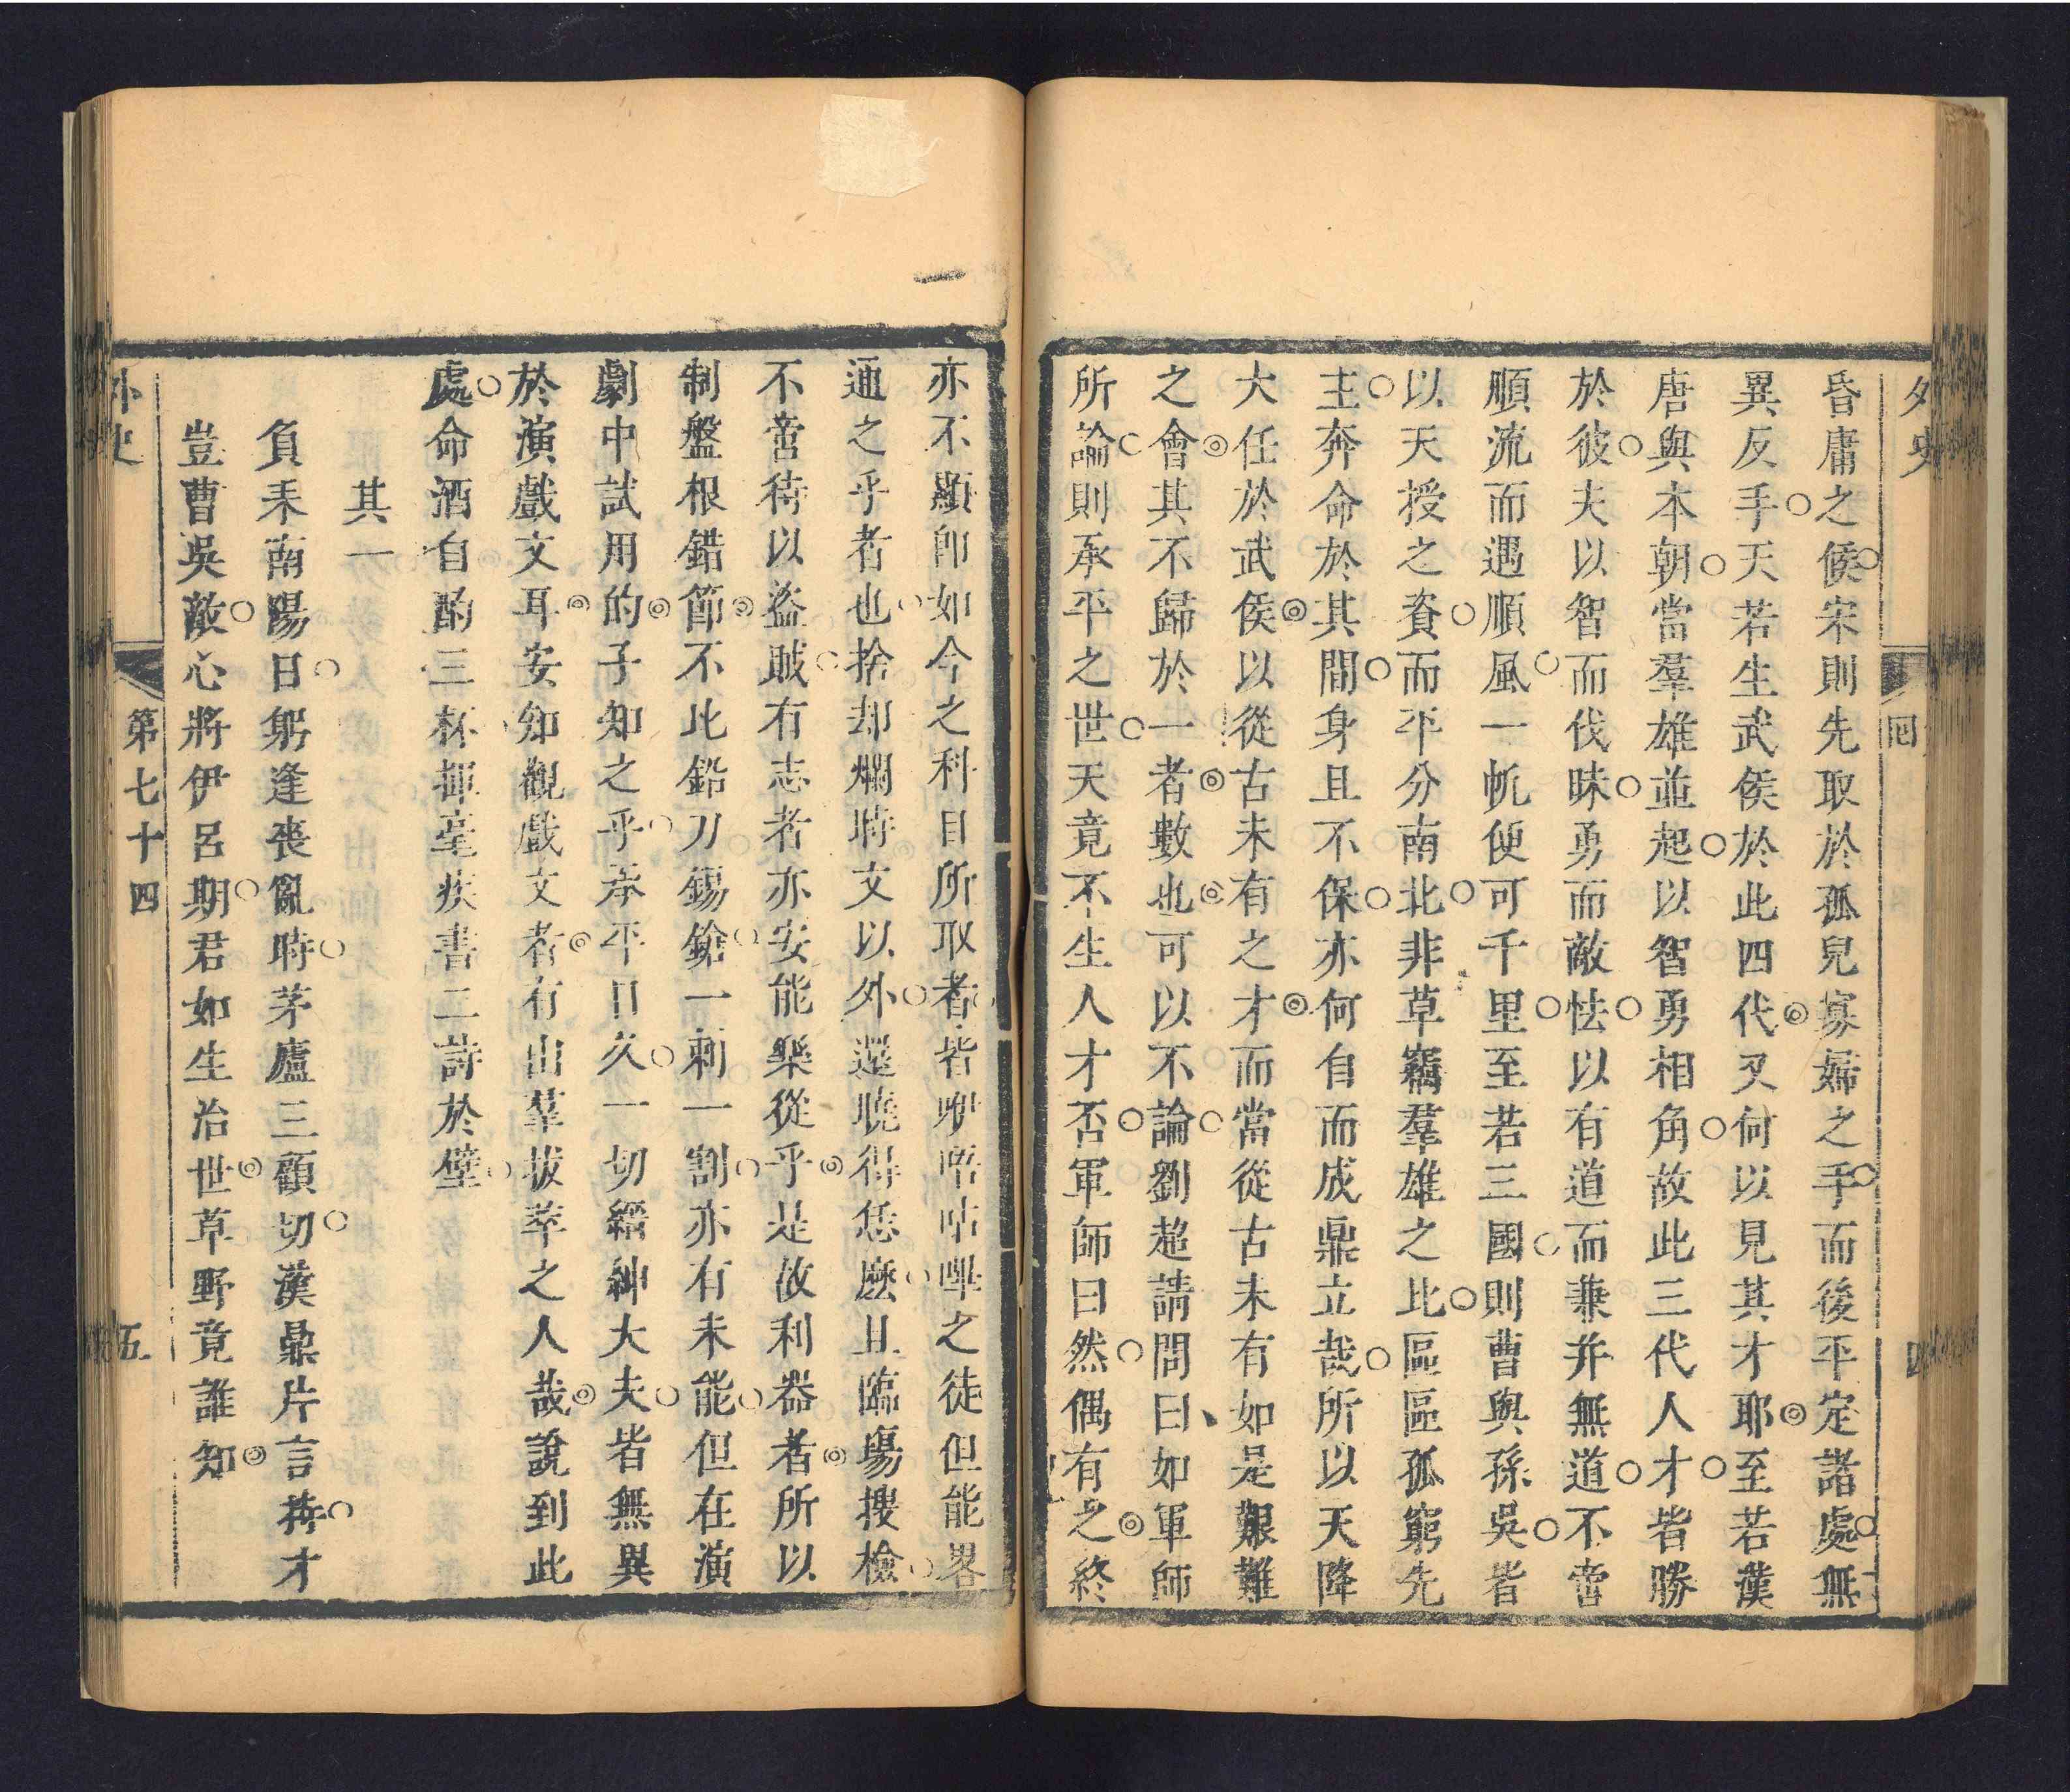 外史
回
四
昏庸之侯宋則先取於孤兒寡婦之手而後平定諸處無
異反手天若生武侯於此四代又何以見其才耶至若漢
唐與本朝當羣雄並起以智勇相角故此三代人才皆勝
於彼夫以智而伐昧勇而敵怯以有道而兼并無道不啻
順流而遇順風一帆便可千里至若三國則曹與孫吳皆
以天授之資而平分南北非草竊羣雄之比區區孤窮先
主奔命於其間身且不保亦何自而成鼎立哉所以天降
大任於武侯以從古未有之才而當從古未有如是艱難
之會其不歸於一者數也可以不論劉超請問曰如軍師
所論則承平之世天竟不生人才否軍師曰然偶有之終
亦不顯即如今之科目所取者皆咿唔呫嗶之徒但能畧
通之乎者也捨却爛時文以外還曉得恁麽且臨塲搜檢
不啻待以盜賊有志者亦安能樂從乎是故利器者所以
制盤根錯節不比鉛刀錫鎗一刺一割亦有未能但在演
劇中試用的子知之乎承平日久一切縉紳大夫皆無異
於演戲文耳安知觀戲文者有出羣拔萃之人哉說到此
處命酒自酌三杯揮毫疾書二詩於壁
其一
負耒南陽日躬逢喪亂時茅廬三顧切漢鼎片言持才
豈曹吳敵心將伊呂期君如生治世草野竟誰知
外史
第七十四
五